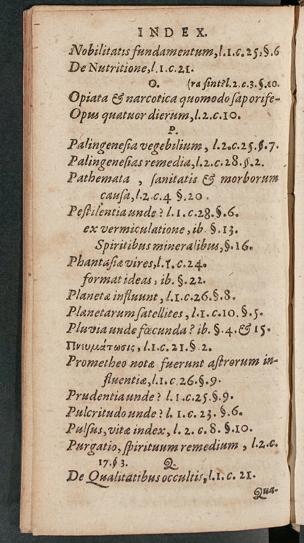 INDEX.
Nobilitatis fundamentum, l.1.c.25.§.6
De Nutritione, l.1.c.21.
O. (ra sint? l.2.c.3.§.10.
Opiata & narcotica quomodo saporife-
Opus quatuor dierum, l.2.c.10.
P.
Palingenesia vegebilium, l.2.c.25.§.7.
Palingenesias remedia, l.2.c.28.§.2.
Pathemata, sanitatis & morborum
causa, l.2.c.4 §.20.
Pestilentia unde? l.1.c.28.§.6.
ex vermiculatione, ib. §.13.
Spiritibus mineralibus, §.16.
Phantasiæ vires, l.1.c.24.
format ideas, ib. §.22.
Planetæ influunt, l.1.c.26.§.8.
Planetarum satellites, l.1.c.10.§.5.
Pluvia unde fœcunda? ib. §.4. & 15.
Πνιυμάτωσις, l.1.c.21.§.2.
Prometheo notæ fuerunt astrorum in-
fluentiæ, l.1.c.26.§.9.
Prudentia unde? l.1.c.25.§.9.
Pulcritudo unde? l.1.c.23.§.6.
Pulsus, vitæ index, l.2.c.8.§.10.
Purgatio, spirituum remedium, l.2.c.
17.§3. Q.
De Qualitatibus occultis, l.1.c.21.
Qua-